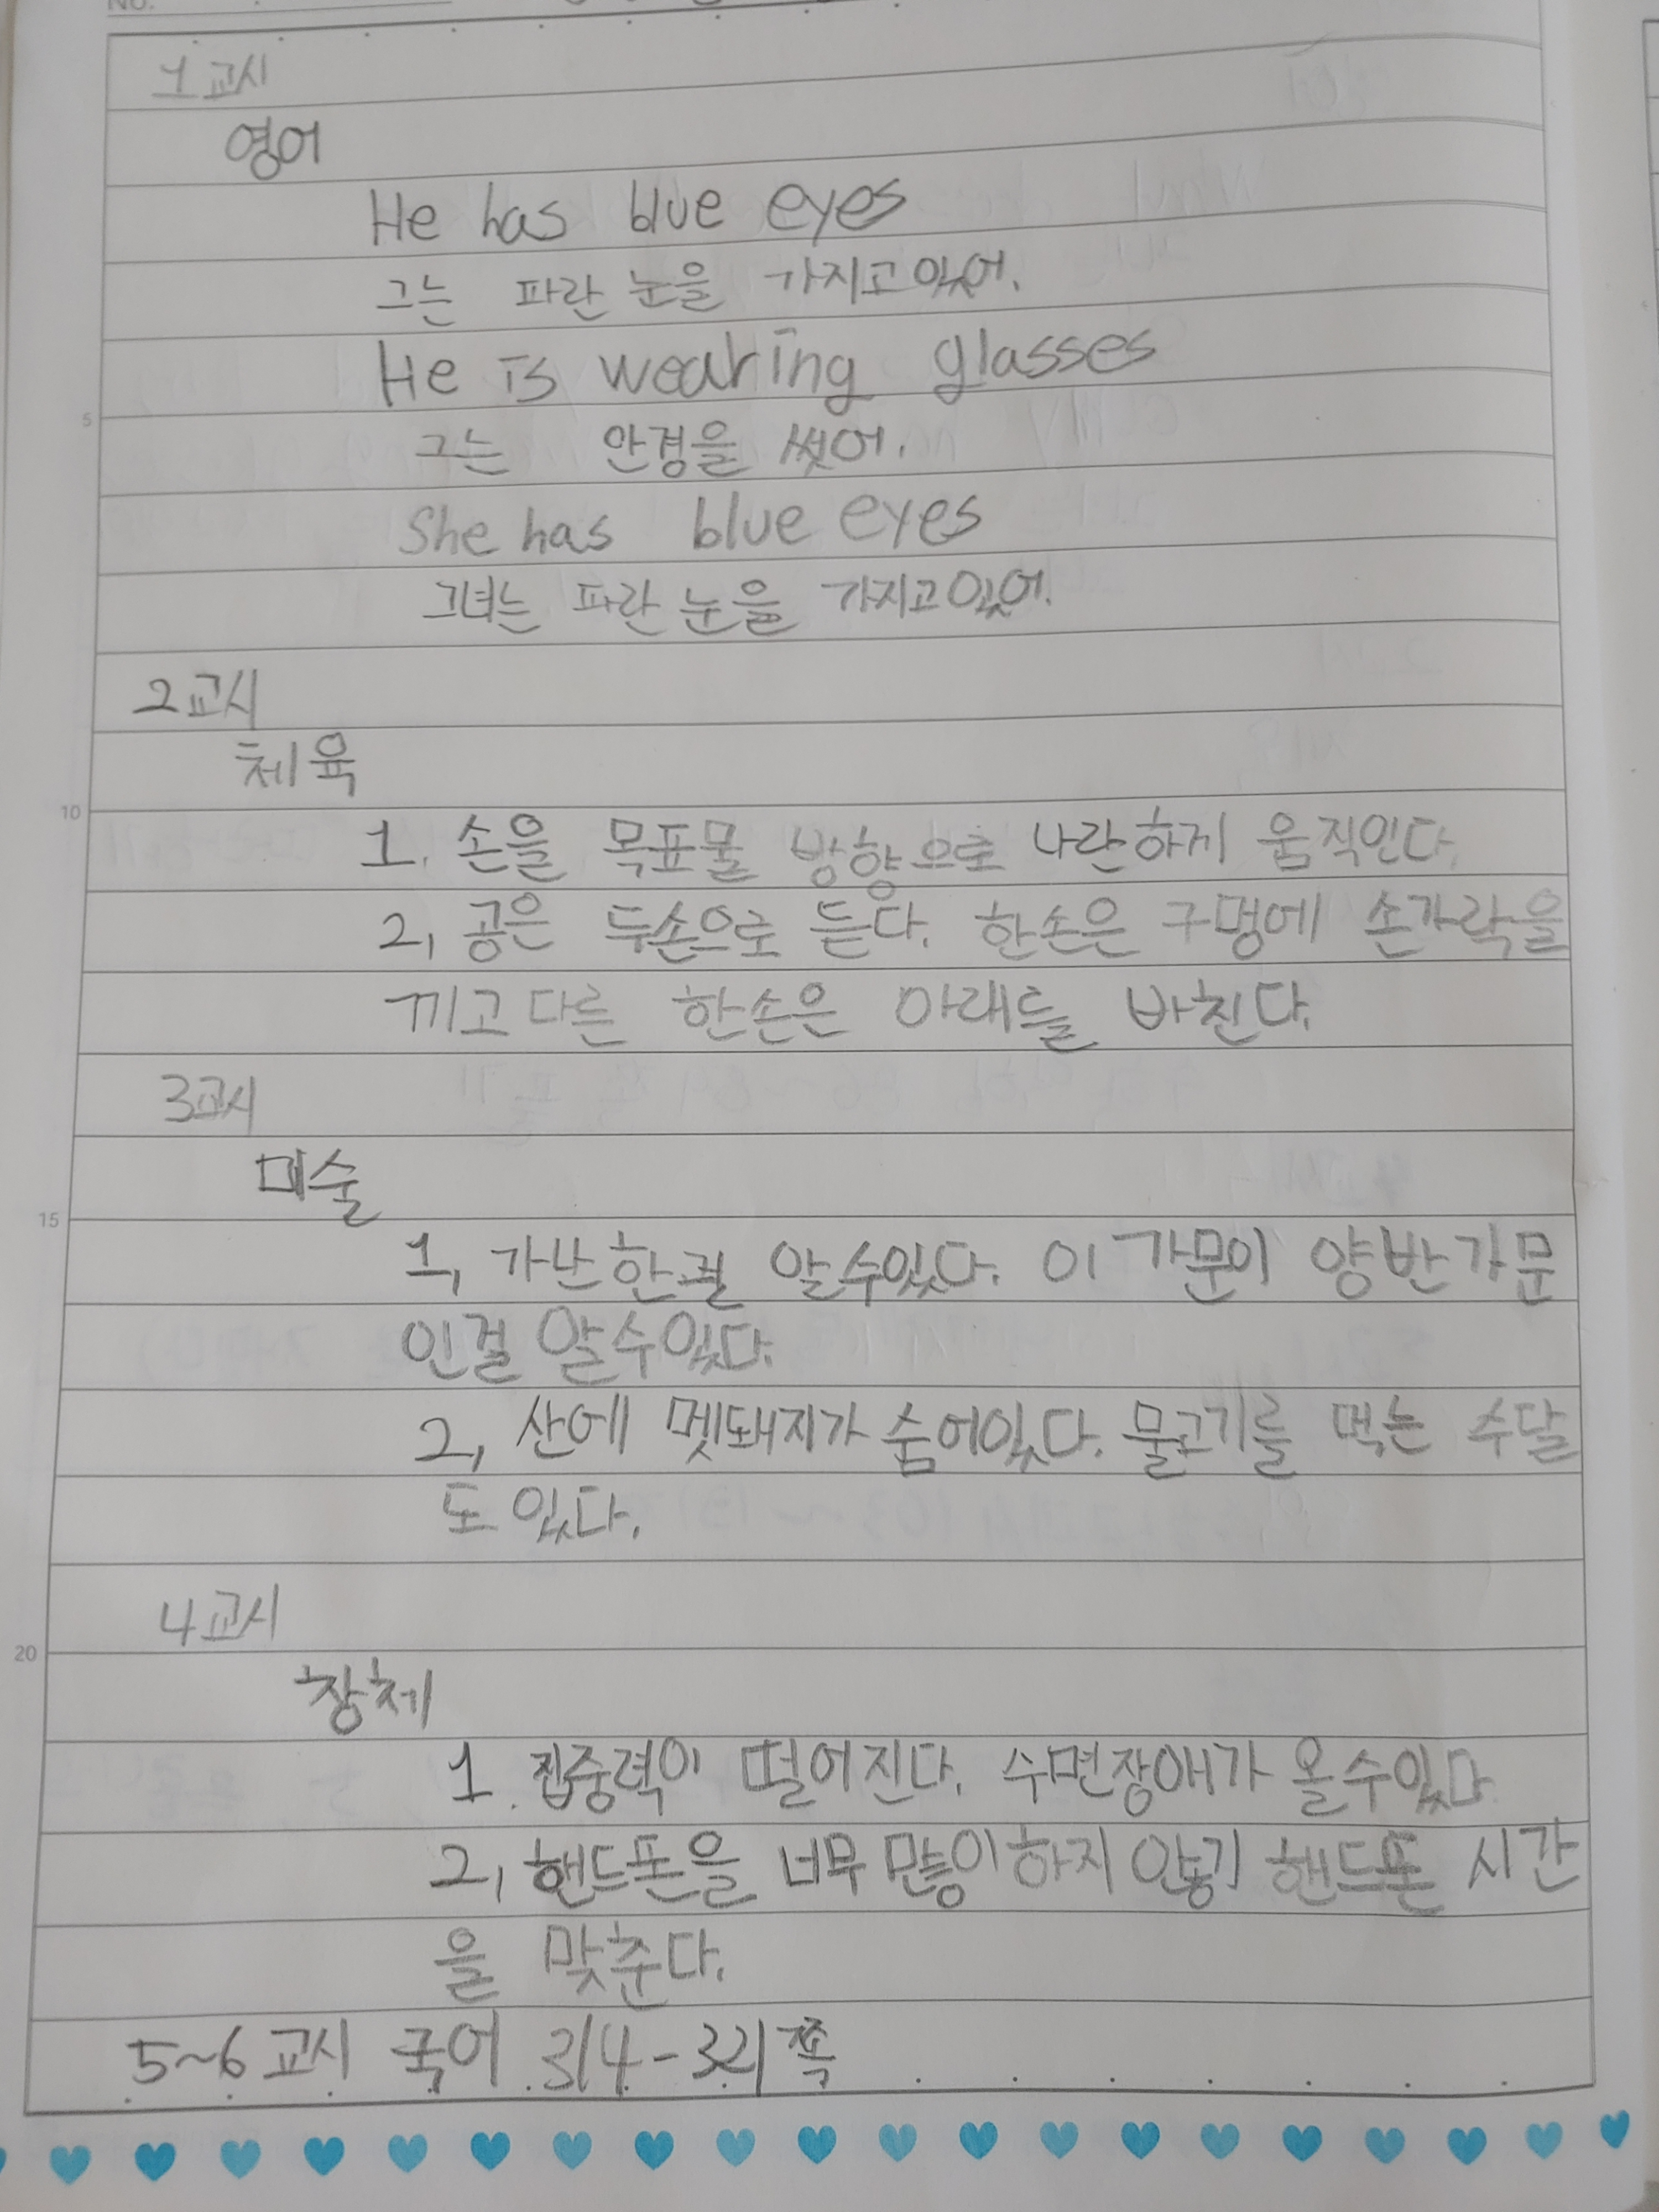 NO.
1교시
영어
He has blue eyes
그는 파란 눈을 가지고있어.
He is wearing glasses
5
그는 안경을 썻어.
She has blue eyes
그녀는 파란 눈을 가지고있어.
2교시
체육
10
1. 손을 목표물 방향으로 나란하게 움직인다.
2, 공은 두손으로 듣다. 한손은 구멍에 손가락을
끼고 다른 한손은 아래를 바친다.
3교시
미술
15
1, 가난한걸 알수있다. 이 가문이 양반가문
인걸 알수있다.
2, 산에 멧돼지가 숨어있다. 물고기를 먹는 수달
도 있다.
4교시
20
창체
1. 집중력이 떨어진다. 수면장애가 올수있다
2, 핸드폰을 너무 많이하지 않기 핸드폰 시간
을 맞춘다.
5~6교시 국어 314-321쪽